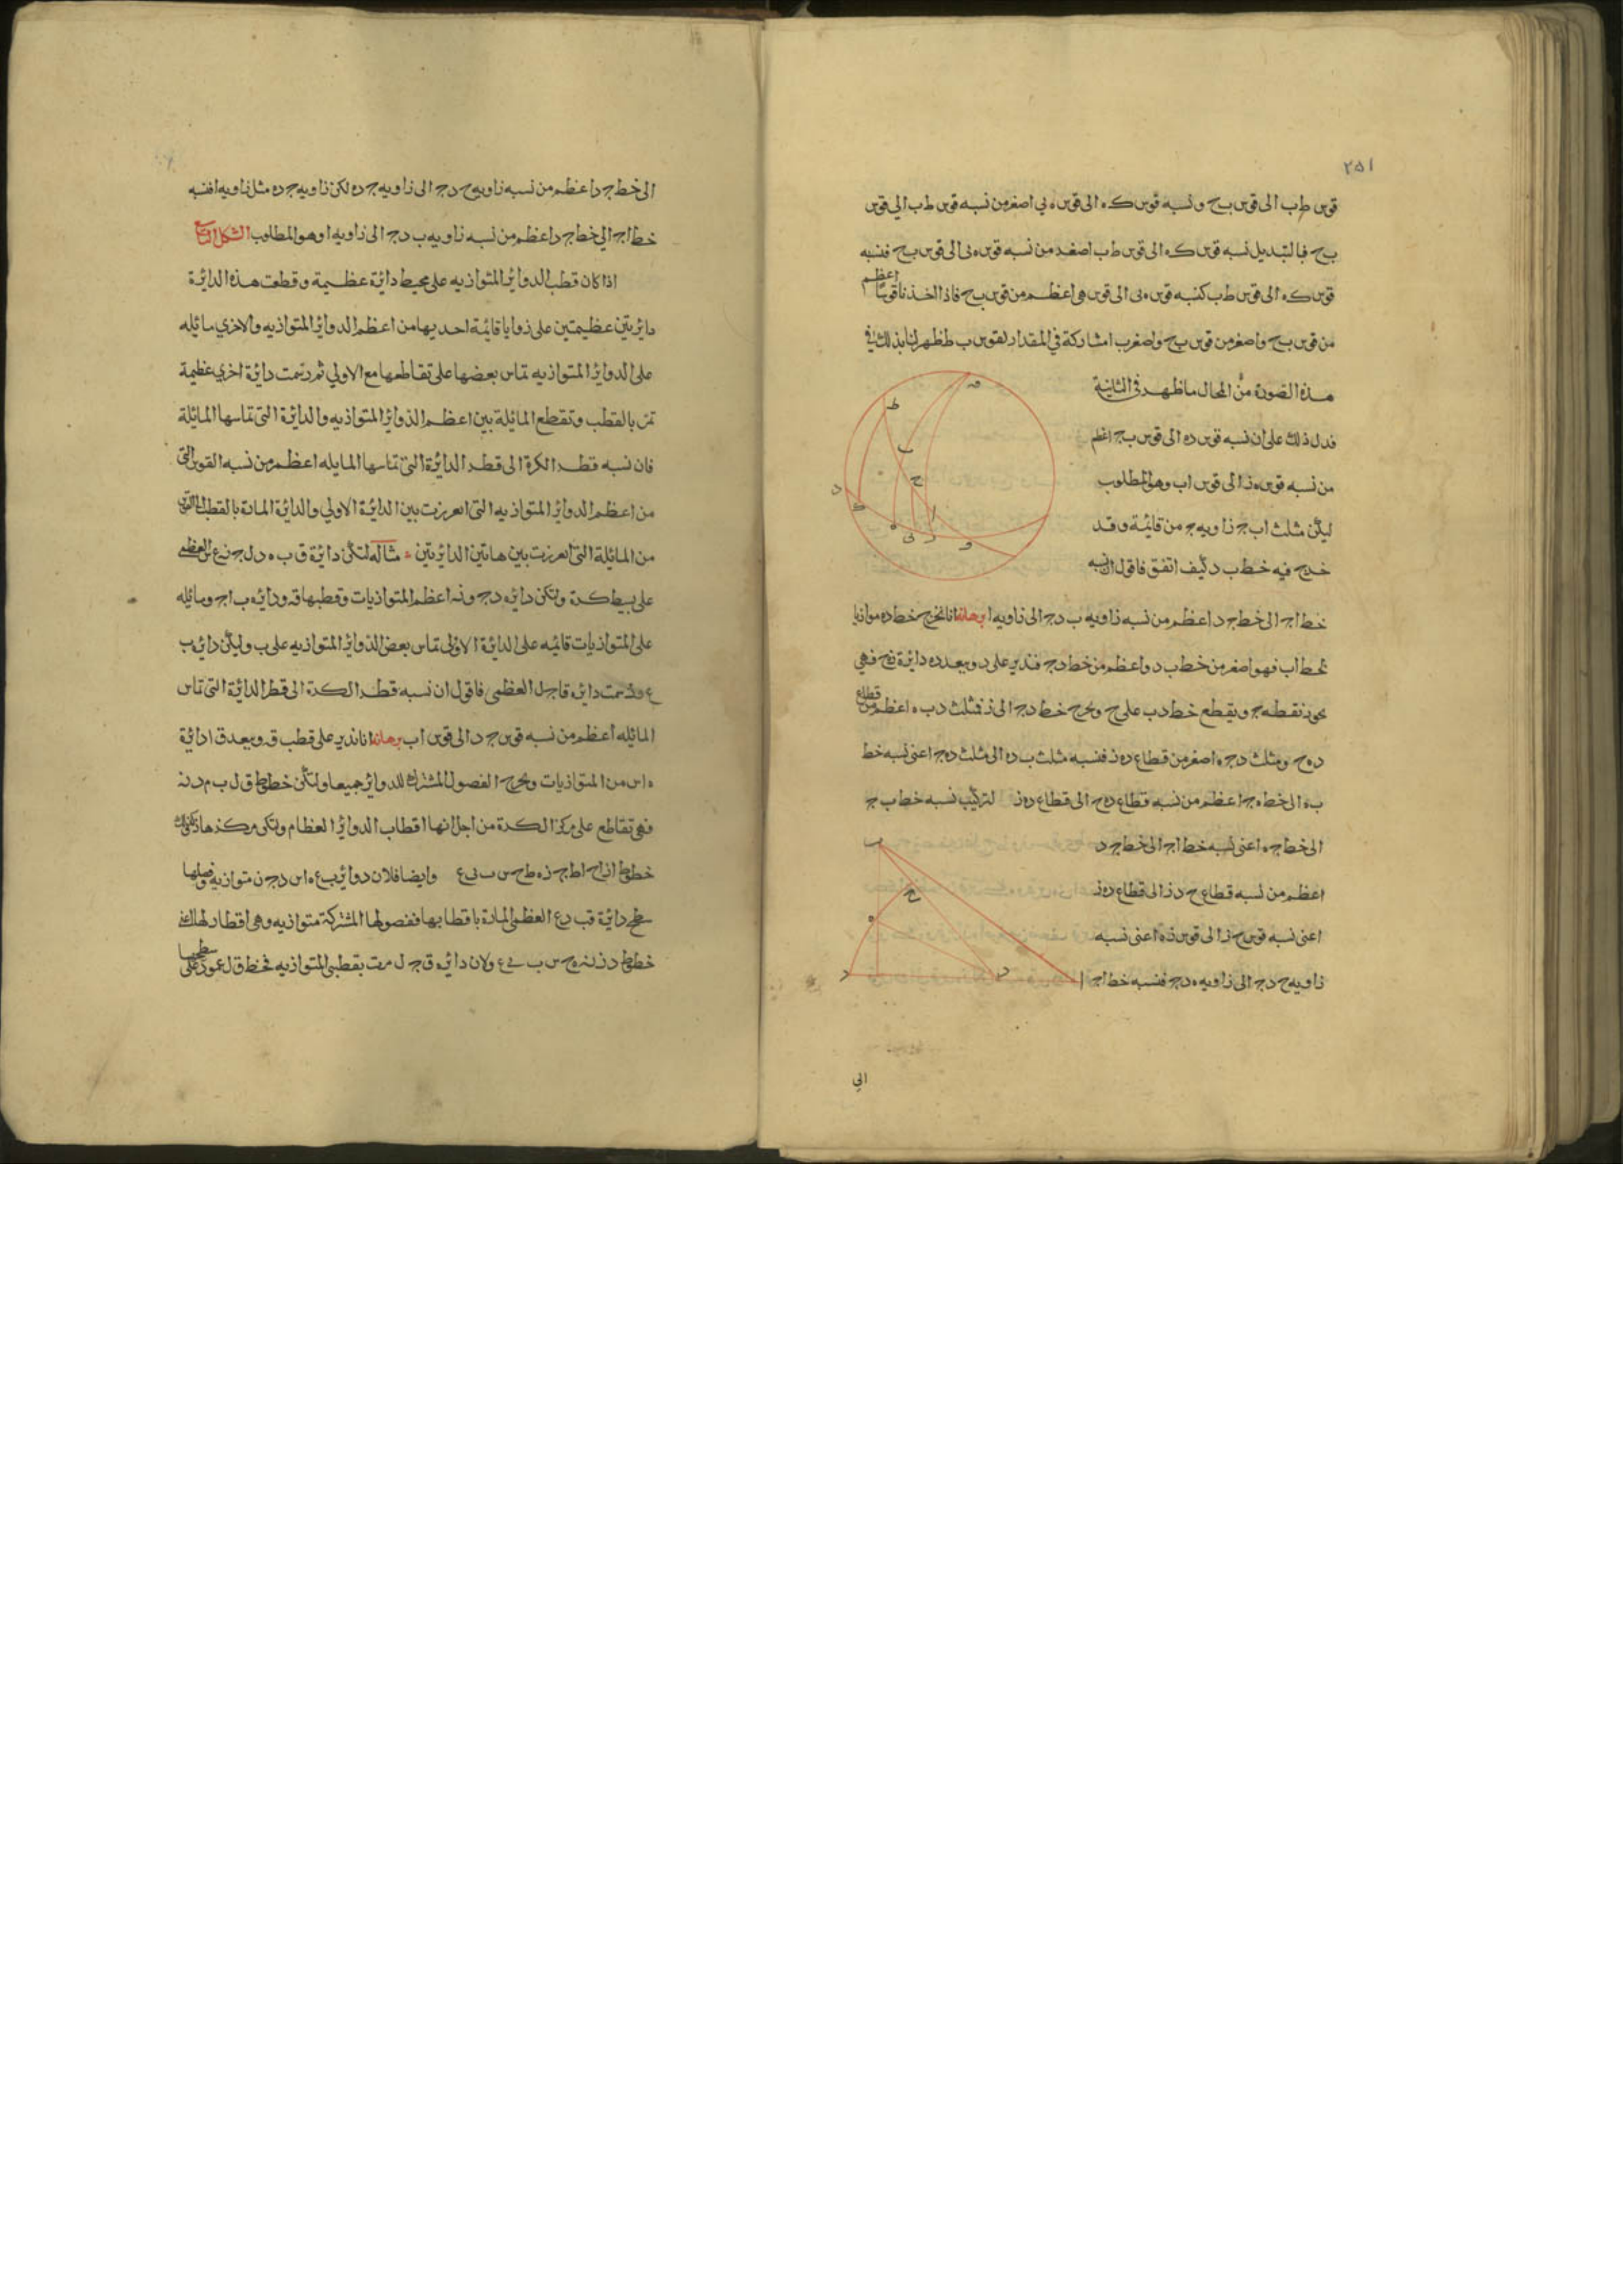 ٢٥١
قوس طب الى قوس بح ونسبه قوس كه الى قوس ه ى اصغر من نسبه قوس طب الى قوس
بح فبالتبديل نسبه قوس كه الى قوس طب اصغر من نسبه قوس ه ى الى قوس بح فنسبه
قوس كه الى قوس طب كنسبه قوس ه ى الى قوس هى اعظم من قوس بح فاذا اخذنا قوسا اعظم
من قوس بح واصغر من قوس بج واصغر ب امشاركة فى المقدار لقوس ب ط ظهر لنا بذلك فى
هذه الصورة من المحال ما ظهر فى الثانية
فدل ذلك على ان نسبه قوس ده الى قوس بج اعظم
من نسبه قوس ه ز الى قوس اب وهو المطلوب
ليكن مثلث اب ج زاويه ج من قائمة وقد
خرج فيه خط ب د كيف اتفق فاقول ان نسبه
خط اج الى خط ج د اعظم من نسبه زاويه ب د ج الى زاويه ا برهانه انا نخرج خط ده موازيا
لخط اب فهو اصغر من خط ب د واعظم من خط دج فندير على د وببعد ده دايرة زح فهى
تجوز نقطه ج ويقطع خط دب على ح ونخرج خط دج الى ز فمثلث د ب ه اعظم من قطاع
د ه ح ومثلث دج ه اصغر من قطاع ده ز فنسبه مثلث ب ده الى مثلث ده ج اعنى نسبه خط
ب ه الى خط ه ج اعظم من نسبه قطاع ده ح الى قطاع ده ز لتركيب نسبه خط ب ج
الى خط ج ه اعنى نسبه خط اج الى خط ج د
اعظم من نسبه قطاع ح د ز الى قطاع ده ز
اعنى نسبه قوس ح ز الى قوس ز ه اعنى نسبه
زاويه ح دج الى زاويه ه دج فنسبه خط اج
الى
الى خط ج د اعظم من نسبه زاويه ح د ج الى زاويه ج ده لكن زاويه ج ده مثل زاويه ا فنسبه
خط اج الى خط ج د اعظم من نسبه زاويه ب د ج الى زاويه ا وهو المطلوب الشكل الرابع
اذا كان قطب الدوائر المتوازيه على محيط دائرة عظيمة وقطعت هذه الدائرة
دائرتين عظيمتين على زوايا قائمة احديهما من اعظم الدوائر المتوازيه والاخرى مائله
على الدوائر المتوازيه تماس بعضها على تقاطعها مع الاولى ثم رسمت دائرة اخرى عظيمة
تمر بالقطب وتقطع المائلة بين اعظم الدوائر المتوازيه والدائرة التى تماسها المائلة
فان نسبه قطر الكرة الى قطر الدائرة التى تماسها المايله اعظم من نسبه القوس التى
من اعظم الدوائر المتوازيه التى انفرزت بين الدائرة الاولى والدائرة المارة بالقطب الى القوس
من المائلة التى انفرزت بين هاتين الدائرتين مثاله لتكن دائرة ق ب ه د ل ج ن ع من العظمى
على بسيط كرة ولتكن دائره دج ونه اعظم المتوازيات وقطبها ق ودائره ب اج ومائله
على المتوازيات قائمه على الدائرة الاولى تماس بعض الدوائر المتوازيه على ب وليكن دائره ب
ع ورسمت دائره ق اج ل العظمى فاقول ان نسبه قطر الكرة الى قطر الدائرة التى تماس
المائله اعظم من نسبه قوس ج د الى قوس اب برهانه انا ندير على قطب ق وببعد ق ا دائرة
ه اس من المتوازيات ونخرج الفصول المشتركة للدوائر جميعا ولتكن خطوط ق ل ب م د نه
فهى تقاطع على مركز الكرة من اجل انها اقطاب الدوائر العظام ولتكن مركزها ز وكذلك
خطوط از اح اط ج زه طح س ب ى ع وايضا فلان دوائر ب ع ه اس د ج ن متوازيه وفصلها
سطح دائرة ق ب د ع العظمى المارة باقطابها ففصولها المشتركة متوازيه وهى اقطار لها اعنى
خطوط د ز نه ه ح س ب ى ع ولان دائره ق ج ل مرت بقطبى المتوازيه فخط ق ل عمود على سطحها